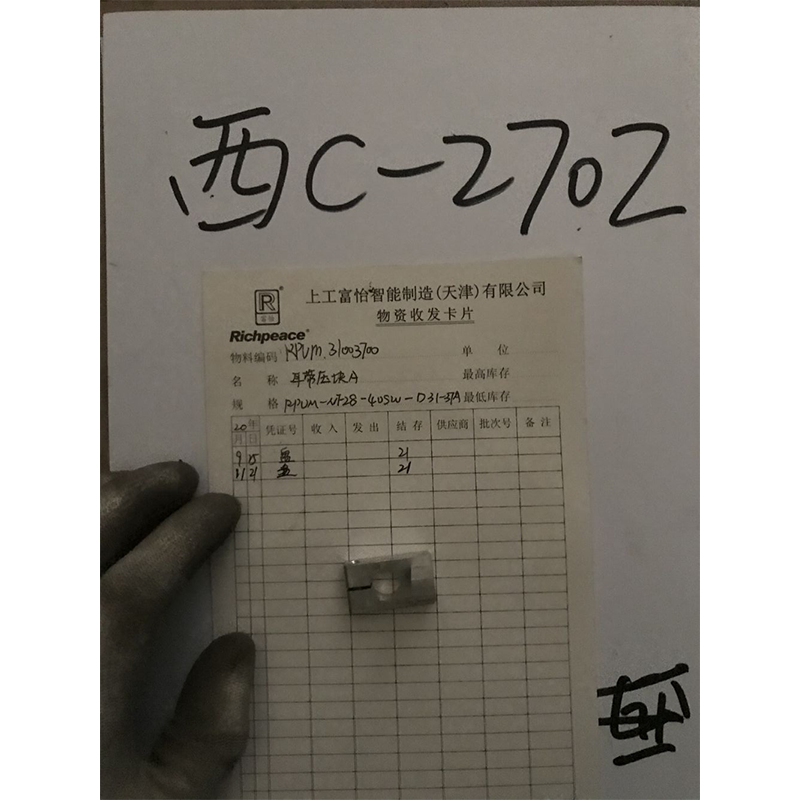 西C-2702
R
富怡
上工富怡智能制造(天津)有限公司
物资收发卡片
Richpeace
物料编码 RPUM.31003700 单 位
名 称 耳带压块A 最高库存
规 格 RPUM-NF28-40SW-D31-37A 最低库存
20年 凭证号 收入 发出 结存 供应商 批次号 备注
月 日
9 25 盘 21
11 21 盘 21